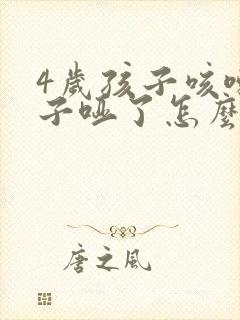 4歲孩子咳
子啞了怎麼
唐之風